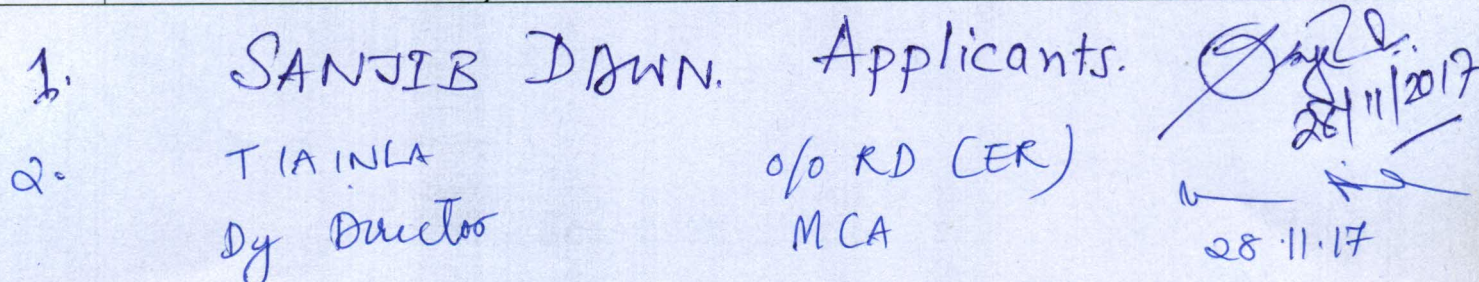 1. SANJIB DAWN. Applicants.
28/11/2017
2. TIAINLA o/o RD (ER)
Dy Director MCA 28.11.17